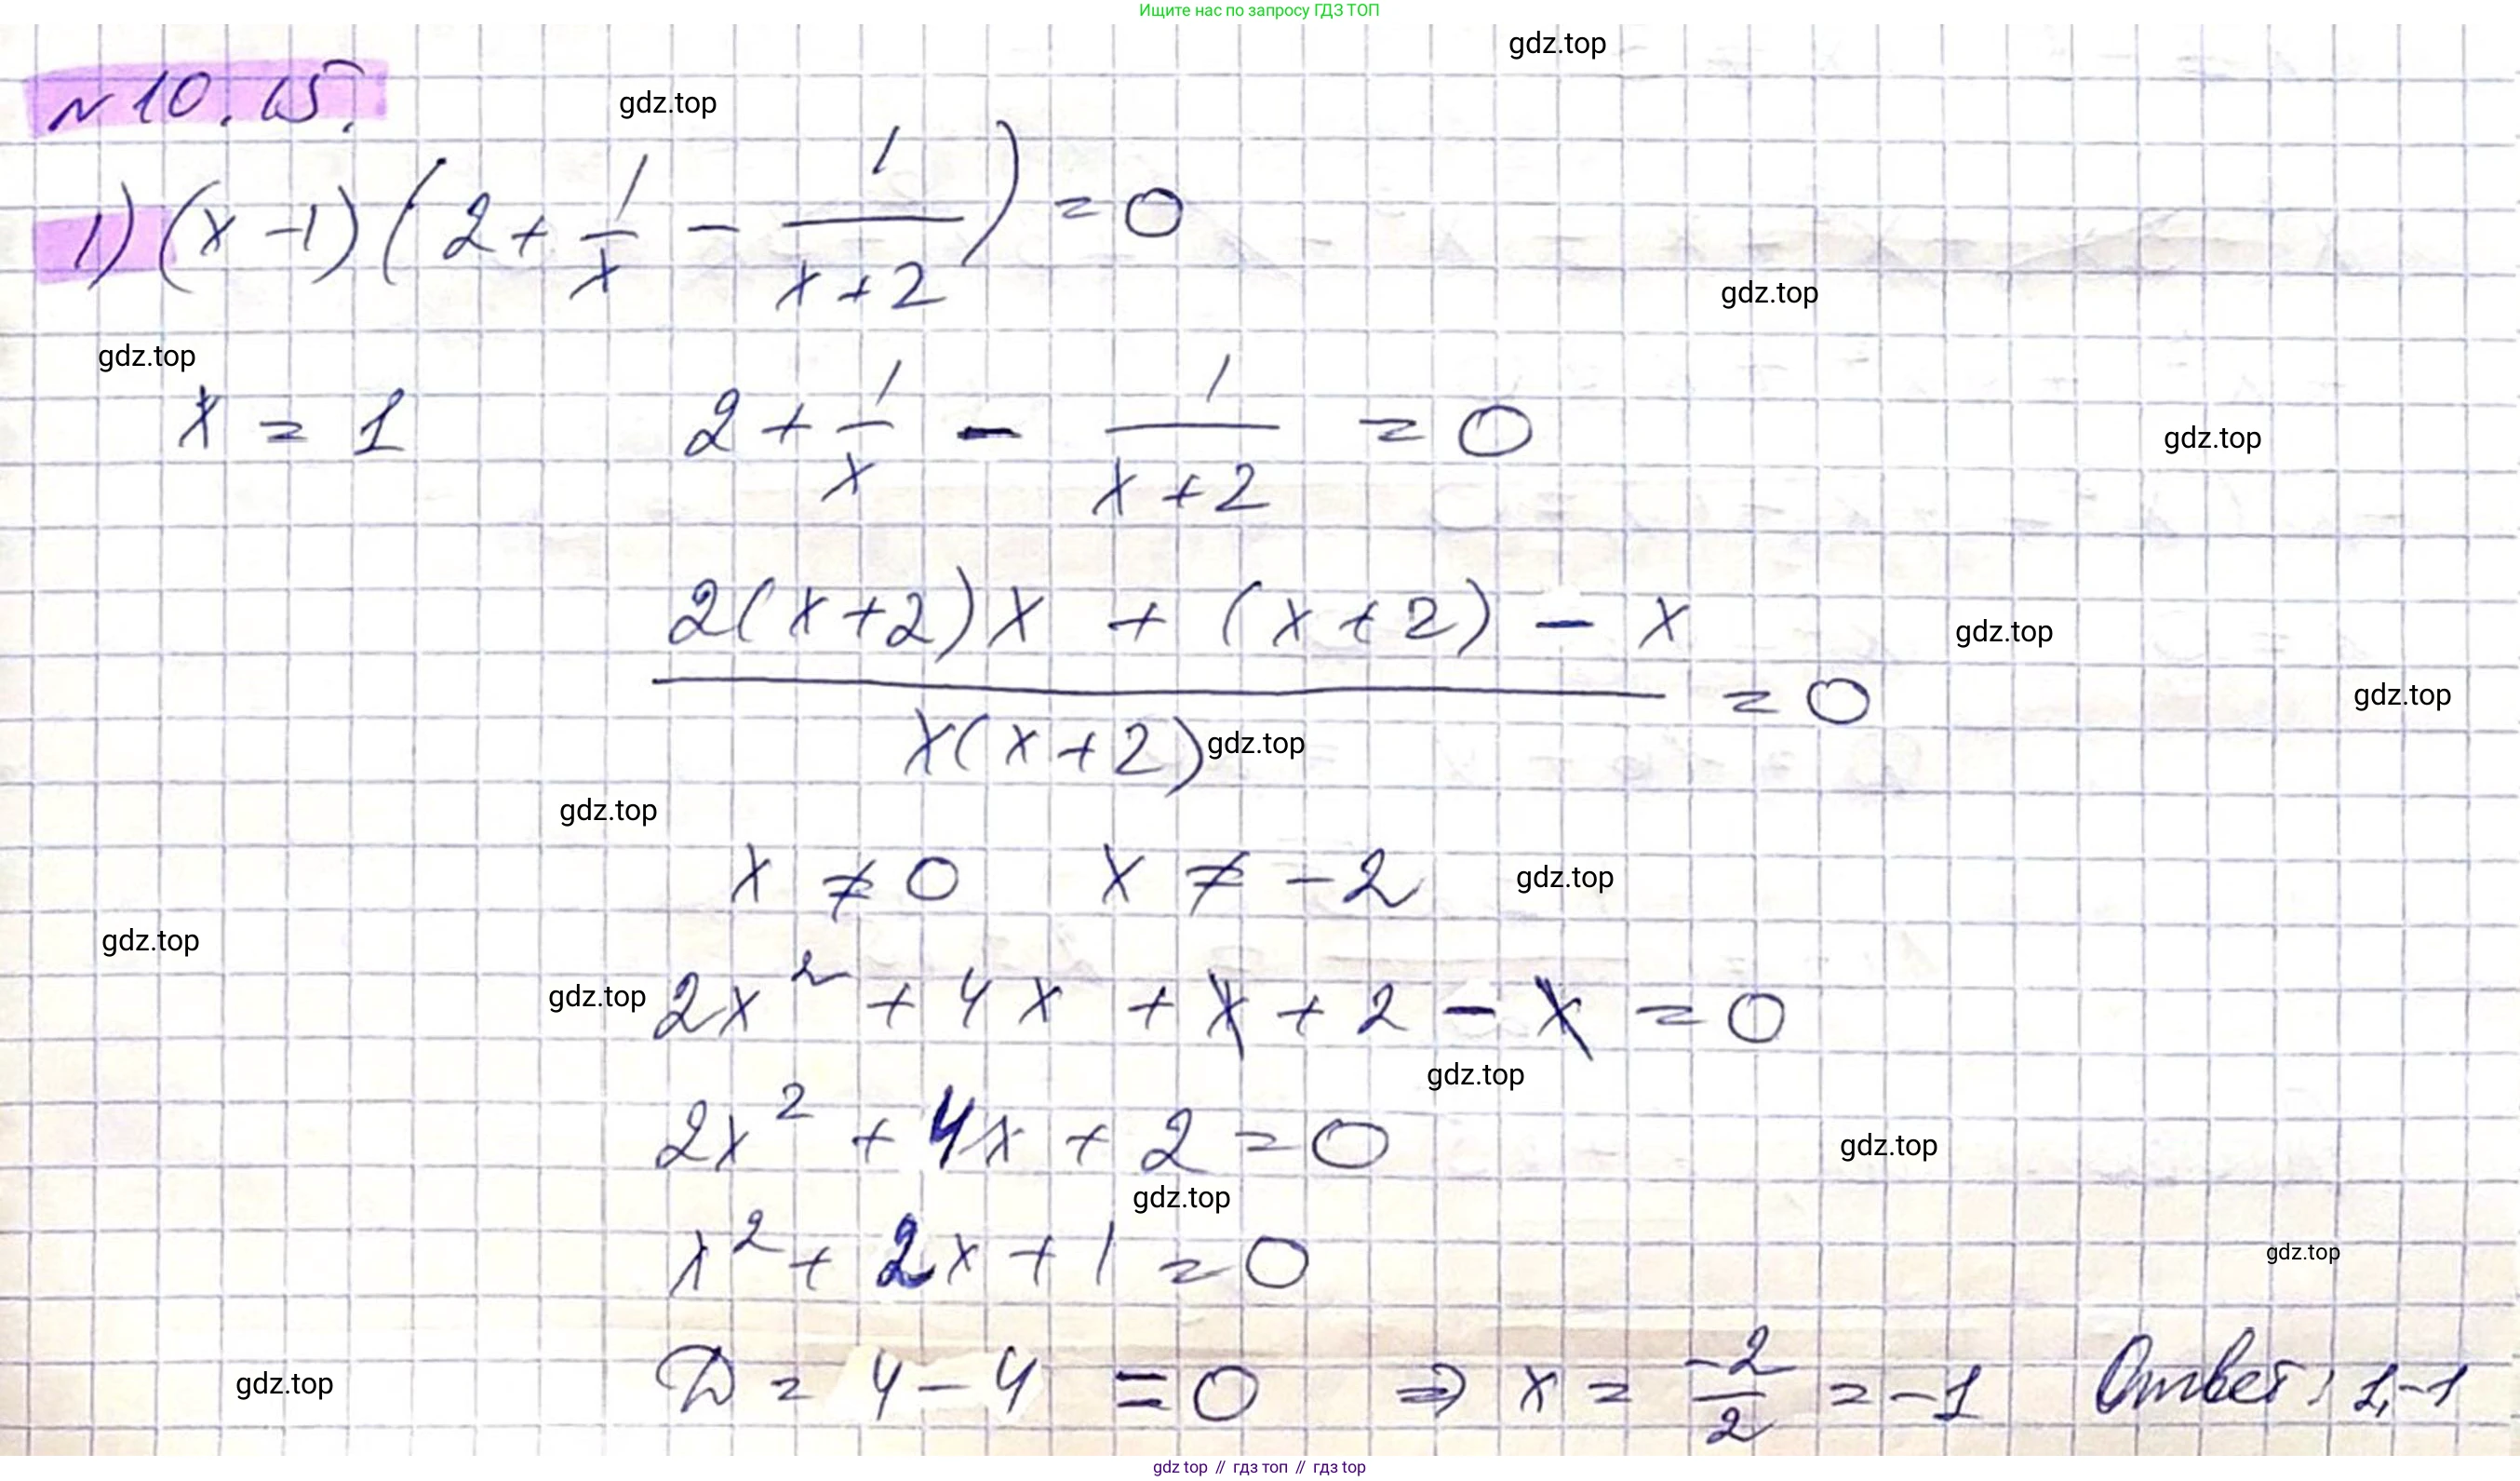 Ищите нас по запросу ГДЗ ТОП
gdz.top
№ 10.15.
gdz.top
1) (x - 1)(2 + 1/x - 1/(x + 2)) = 0
gdz.top
gdz.top
x = 1    2 + 1/x - 1/(x + 2) = 0
gdz.top
(2(x + 2)x + (x + 2) - x)/(x(x + 2)) = 0
gdz.top
gdz.top
gdz.top
gdz.top
x ≠ 0  x ≠ -2
gdz.top
gdz.top
gdz.top
2x² + 4x + x + 2 - x = 0
gdz.top
2x² + 4x + 2 = 0
gdz.top
gdz.top
x² + 2x + 1 = 0
gdz.top
gdz.top
D = 4 - 4 = 0 ⇒ x = -2/2 = -1  Ответ: 1, -1
gdz top // гдз топ // гдз top